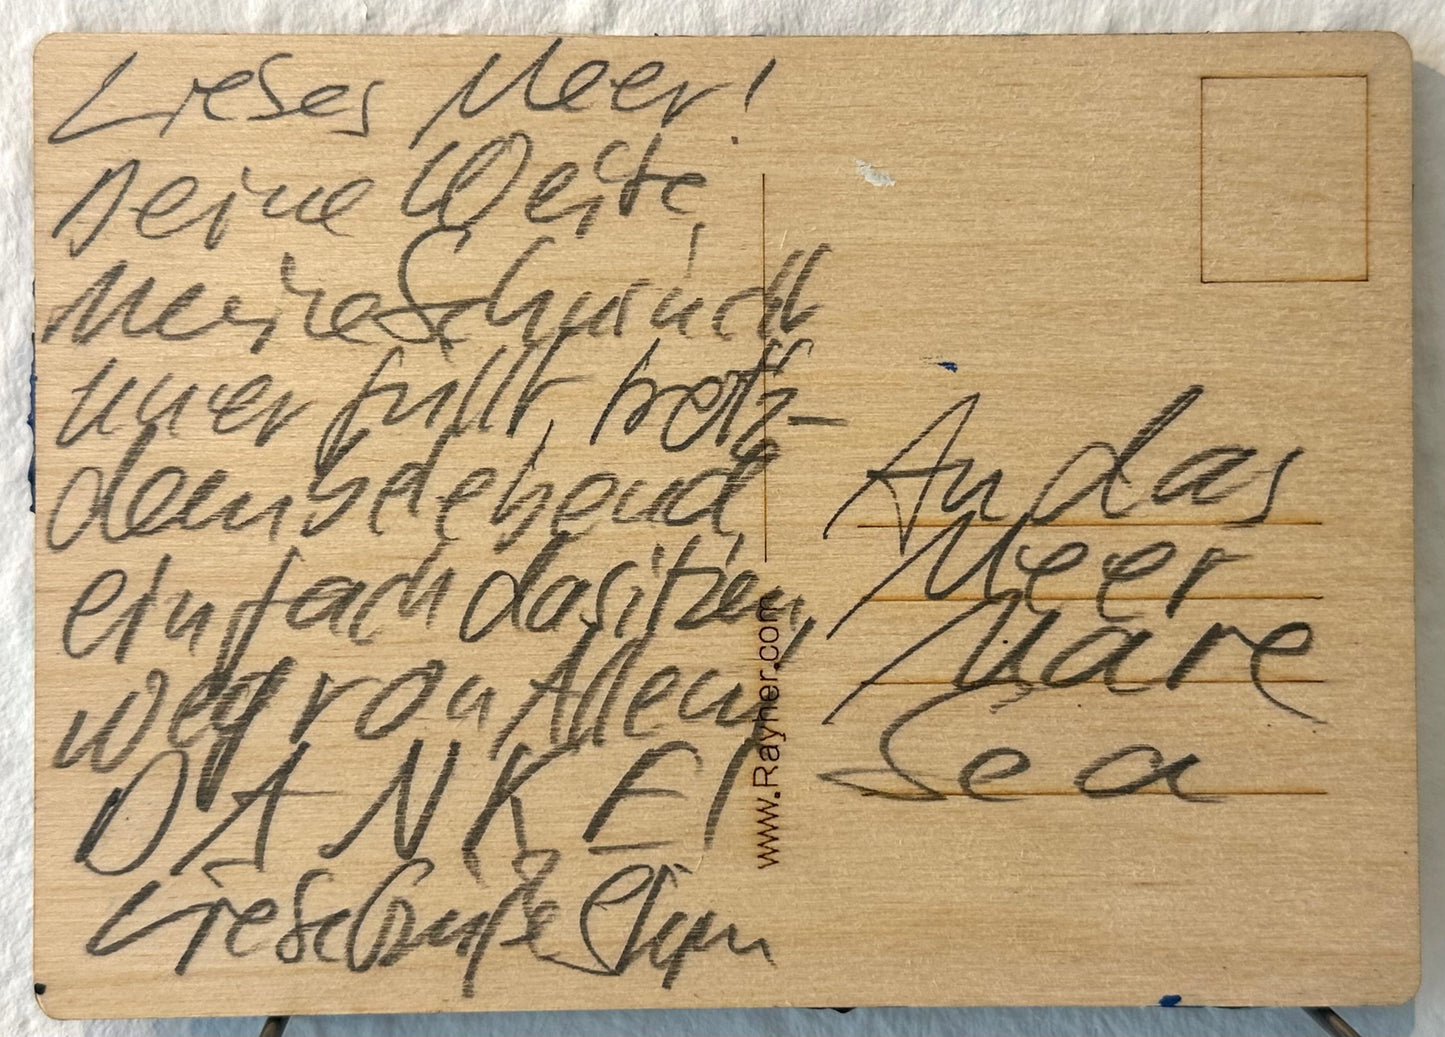 Liebes Meer!
Deine Weite
Meine Sehnsucht
unerfüllt trotz-
dem belebend
einfach dasitzen,
weg von Allem,
DANKE!
Liebe Grüße
An das
Meer
Mare
Sea
www.Rayher.com